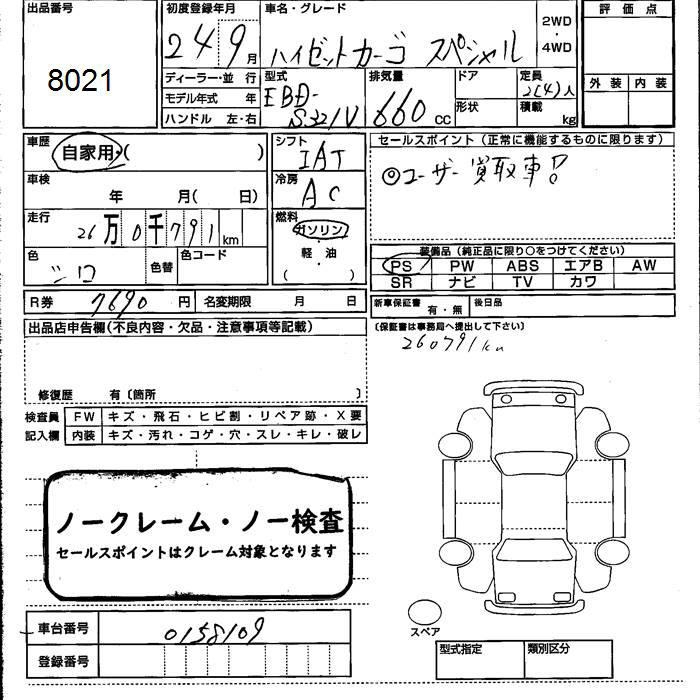 出品番号
8021
初度登録年月
24 9月
車名・グレード
ハイゼットカーゴ スペシャル
2WD
・
4WD
評価点
外装 内装
ディーラー・並行
モデル年式 年
ハンドル 左・右
型式
EBD-
S321V
排気量
660 cc
ドア
形状
定員
2(4)人
積載
kg
車歴
自家用・( )
シフト
IAT
セールスポイント (正常に機能するものに限ります)
◎ユーザー買取車!
車検
年 月( 日)
冷房
AC
走行
26万0千791km
燃料
ガソリン
・
軽・油
( )
色
シロ
色替
色コード
装備品 (純正品に限り○をつけてください)
PS PW ABS エアB AW
SR ナビ TV カワ
R券 7690円
名変期限 月 日
新車保証書 有・無
後日品
(保証書は事務局へ提出して下さい)
260791km
出品店申告欄(不良内容・欠品・注意事項等記載)
修復歴 有〔箇所 〕
検査員 FW キズ・飛石・ヒビ割・リペア跡・X要
記入欄 内装 キズ・汚れ・コゲ・穴・スレ・キレ・破レ
ノークレーム・ノー検査
セールスポイントはクレーム対象となります
車台番号 0158109
登録番号
スペア
型式指定 類別区分